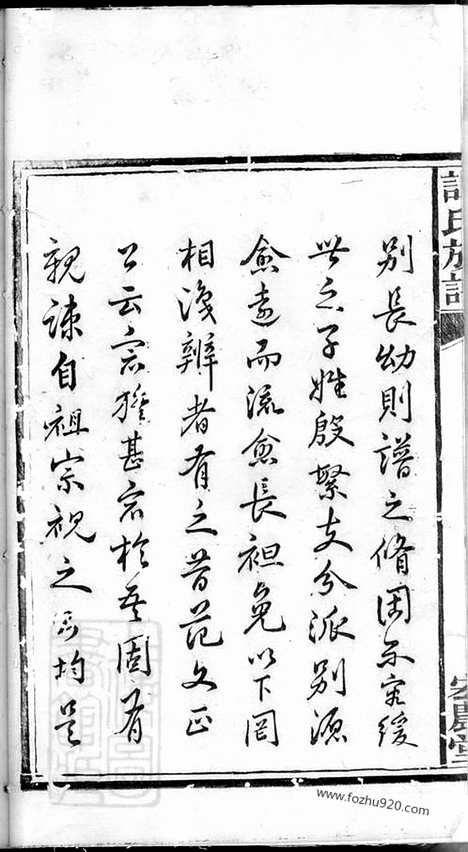 氏族譜
別長幼則譜之脩固不容緩
世之子姓殷繁支分派別源
愈遠而流愈長袒免以下罔
相辨者有之昔范文正
公云宗族甚衆於吾固有
親疎自祖宗視之則均是
農堂
www.fozhu920.com